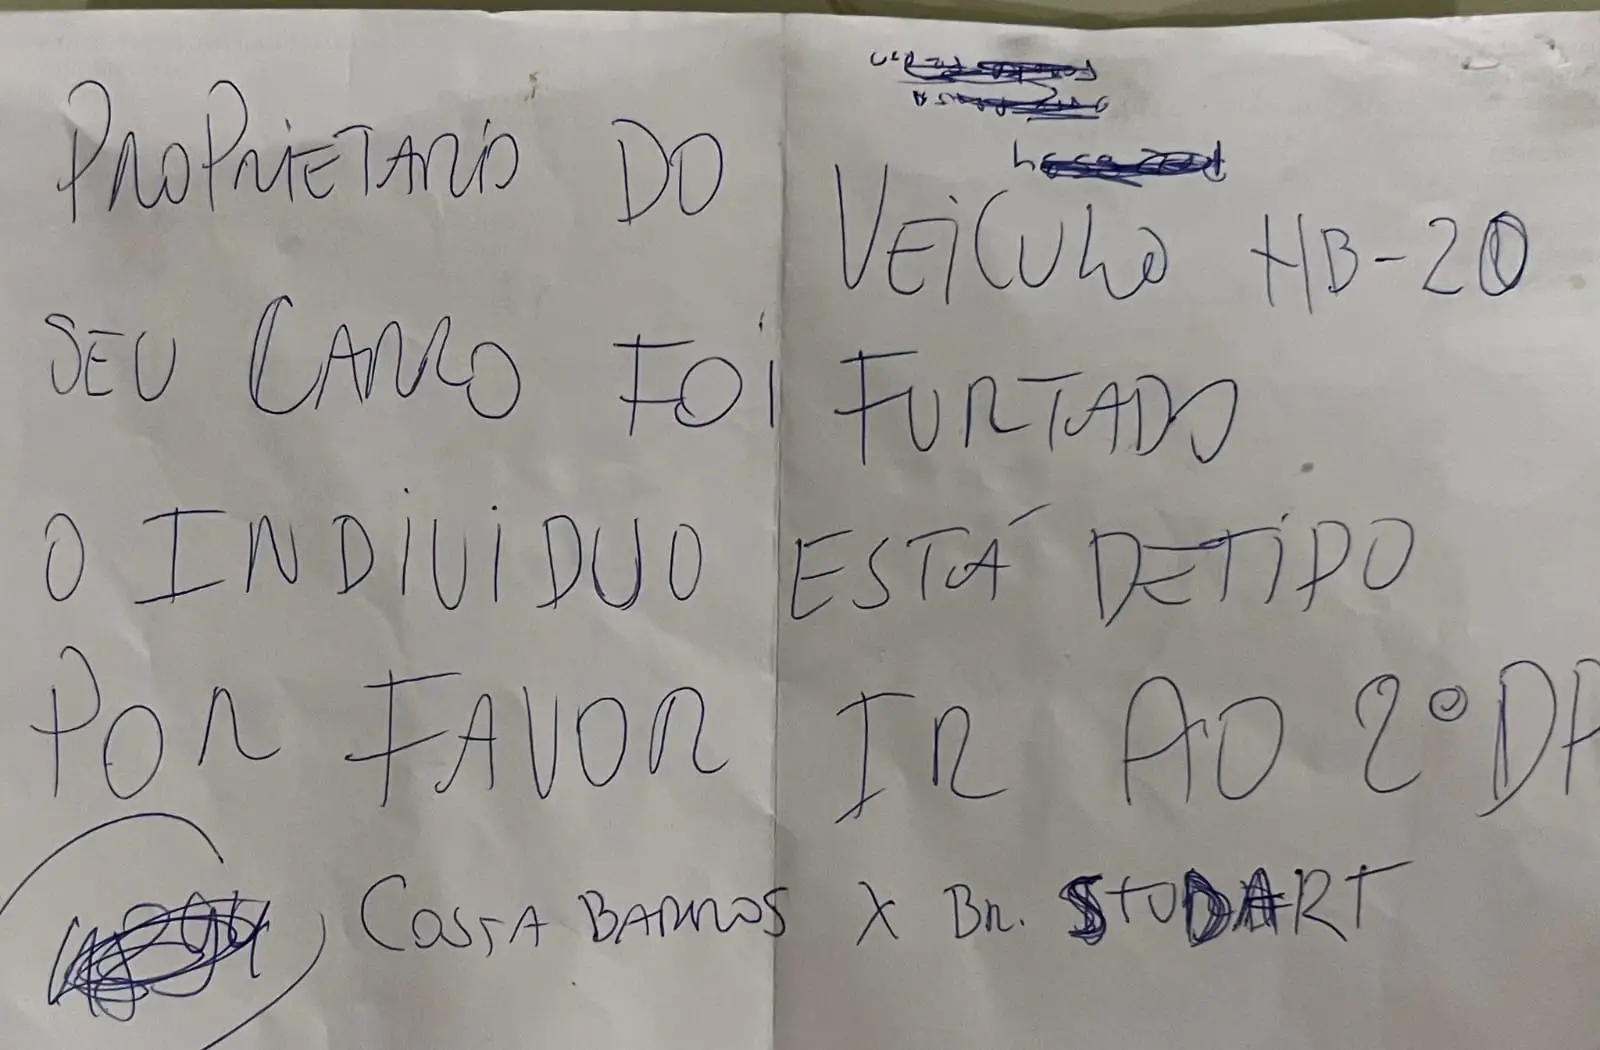 PROPRIETARIO DO VEICULO HB-20
SEU CARRO FOI FURTADO
O INDIVIDUO ESTÁ DETIDO
POR FAVOR IR AO 2º DP
COSTA BARROS X BR. STUDART